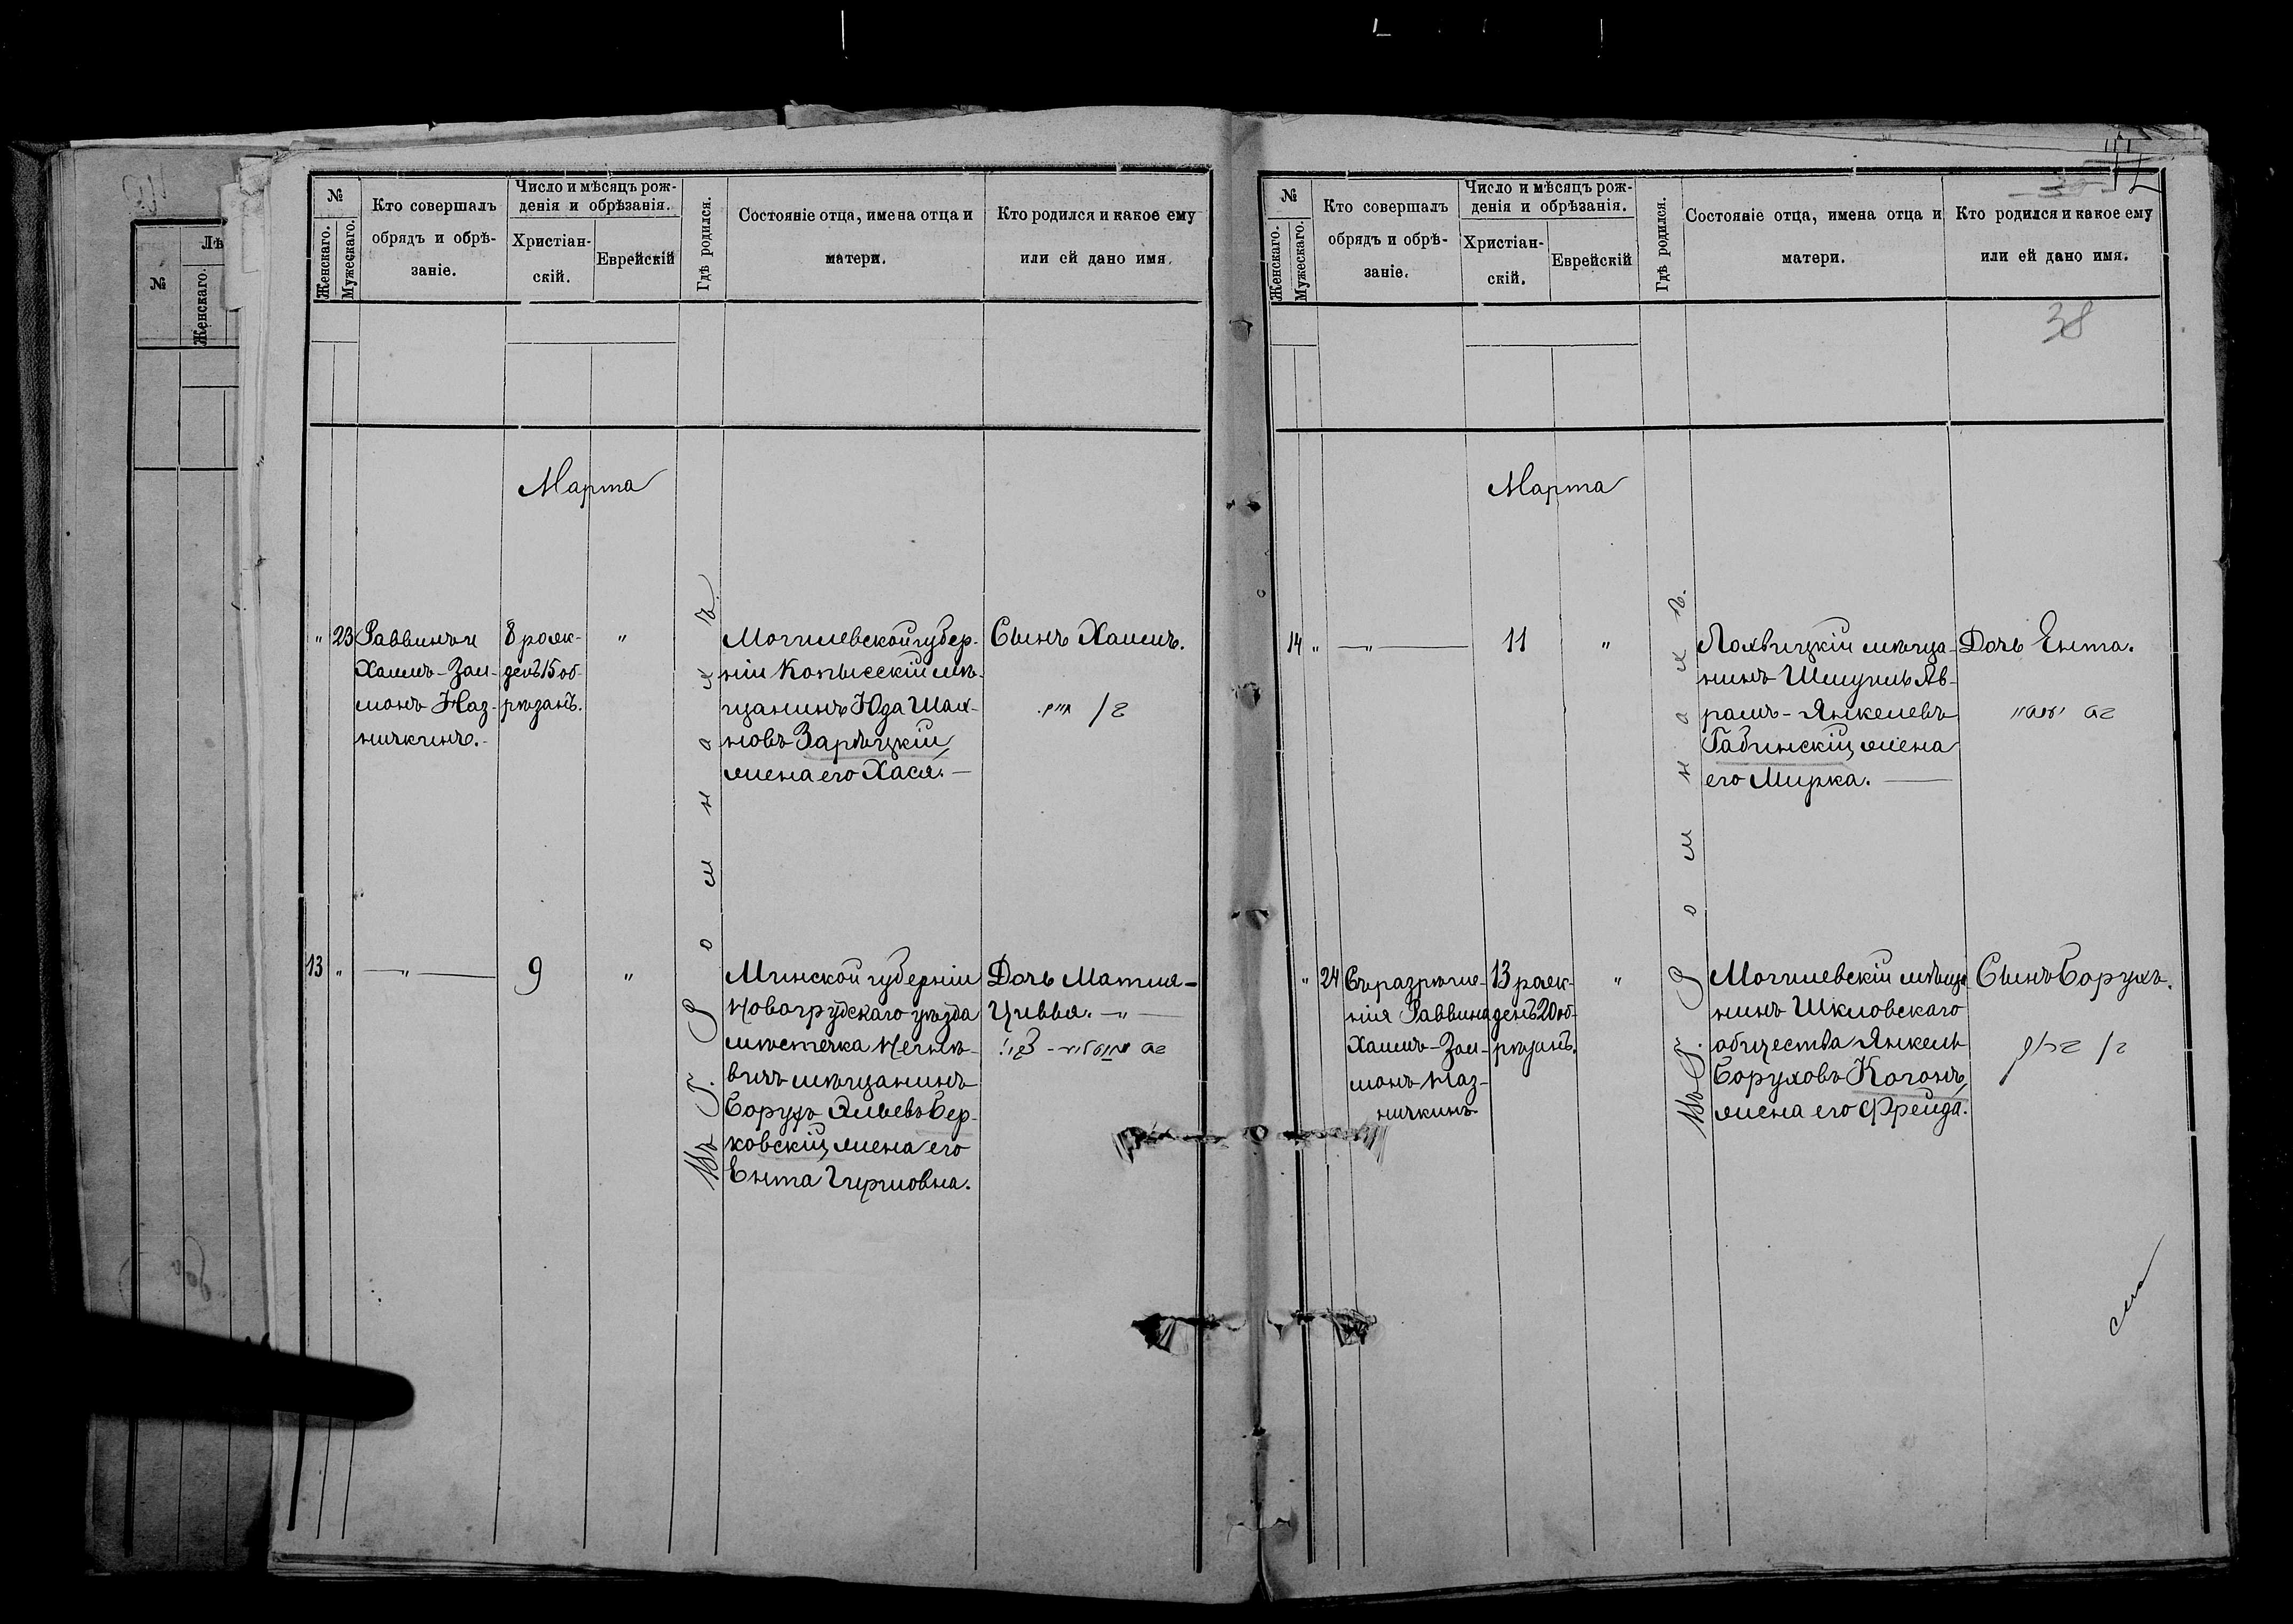 №
Лѣ
Женскаго.
№
Женскаго.
Мужескаго.
Кто совершалъ
обрядъ и обрѣ-
заніе.
Число и мѣсяцъ рож-
денія и обрѣзанія.
Христіан-
скій.
Еврейскій
Гдѣ родился.
Состояніе отца, имена отца и
матери.
Кто родился и какое ему
или ей дано имя.
Марта
" 23
Раввинъ и
Хаимъ-Зал-
монъ Наз-
ничкинъ.
8 рож-
денъ 15 об-
рѣзанъ.
"
Въ г. Ромнахъ.
Могилевской губер-
ніи Копысскій мѣ-
щанинъ Юда Шах-
новъ Зарѣцкій,
жена его Хася. —
Сынъ Хаимъ.
בן חיים.
13 "
— " —
9
"
Минской губерніи
Новогрудскаго уѣзда
мѣстечка
вичъ мѣщанинъ
Борухъ Эльевъ Бер-
ковскій, жена его
Ента Гиршовна.
Дочь Матля-
Цивья. — " —
בת
№
Женскаго.
Мужескаго.
Кто совершалъ
обрядъ и обрѣ-
заніе.
Число и мѣсяцъ рож-
денія и обрѣзанія.
Христіан-
скій.
Еврейскій
Гдѣ родился.
Состояніе отца, имена отца и
матери.
Кто родился и какое ему
или ей дано имя.
38
Марта
14 "
— " —
11
"
Въ г. Ромнахъ.
Лохвицкій мѣща-
нинъ Шмуиль Ав-
рамъ-Янкелевъ
Габинскій, жена
его Мирка. —
Дочь Ента.
בת יענטא
" 24
Съ разрѣше-
нія Раввина
Хаимъ-Зал-
монъ Наз-
ничкинъ
13 рож-
денъ 20 об-
рѣзанъ.
"
Могилевскій мѣща-
нинъ Шкловскаго
общества Янкель
Боруховъ Когонъ,
жена его Фрейда.
Сынъ Борухъ.
בן ברוך